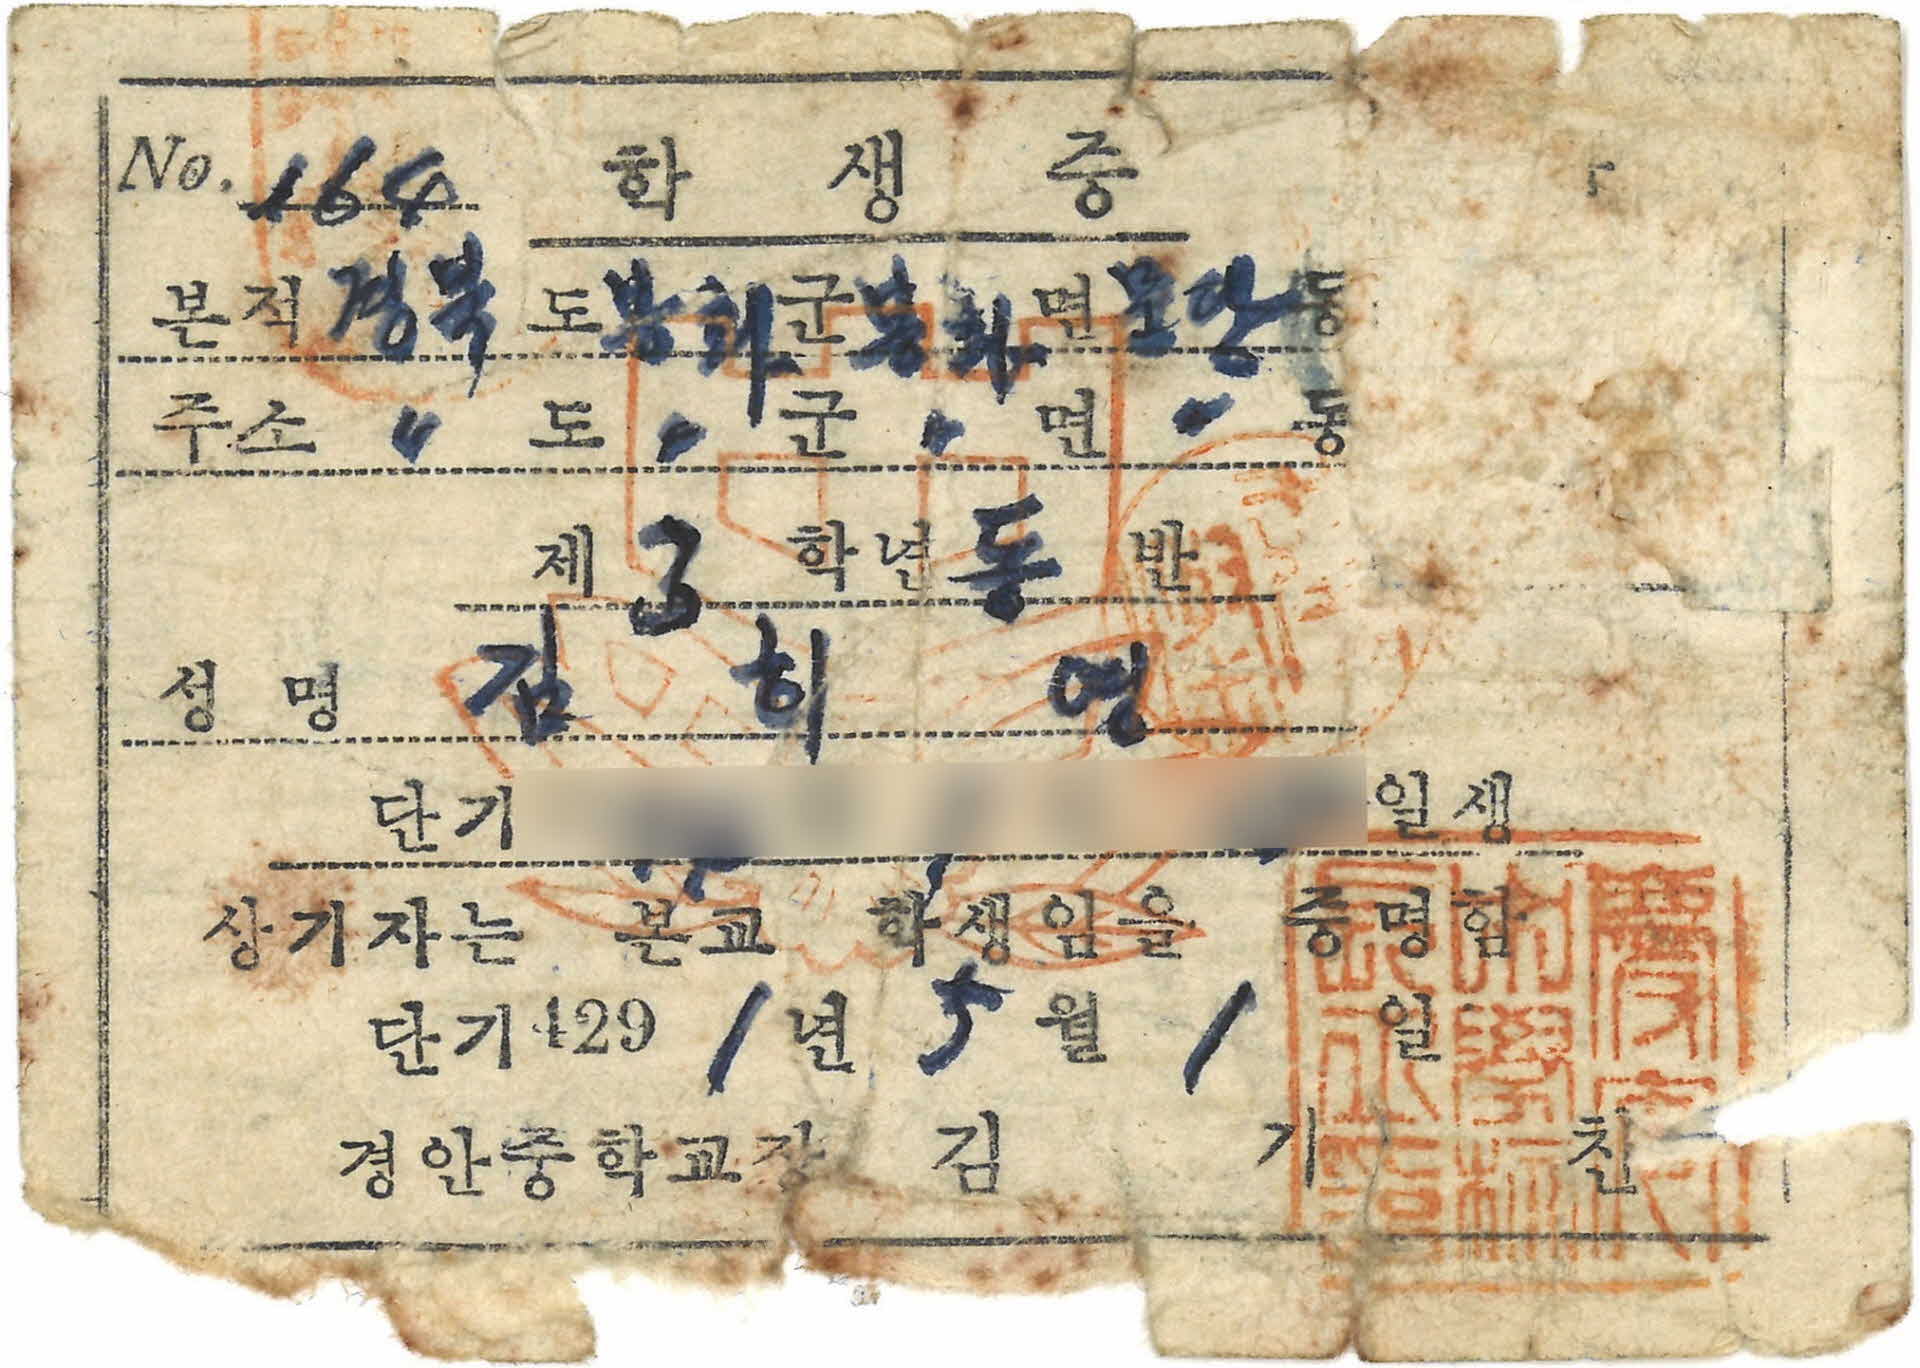 No. 164 학생증
본적 경북 도 봉화 군 봉화 면 문단 동
주소 〃 도 〃 군 〃 면 〃 동
제 3 학년 동 반
성명 김희영
단기 일생
상기자는 본교 학생임을 증명함
단기 4291년 5월 1일
경안중학교장 김기친